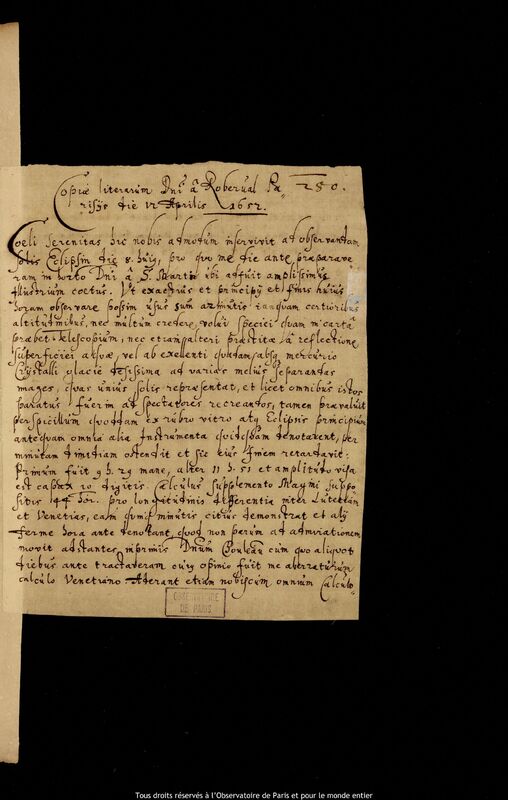 Copiæ literarum Dni à Roberual Pa= 280.
risijs die 12 Aprilis 1652.
Coeli serenitas hic nobis admodum inservivit ad observandam
solis Eclipsin die 8. huius, pro quo me die ante præparave
ram in horto Dni à S. Martin ibi adfuit amplissimus
Illustrium coetus. Ut exactius et principij et finis huius
horam observare possim usus sum azimutis tanquam certioribus
altitudinibus, nec multum credere volui speciei quam in carta
præbet Telescopium, nec etiam alteri præstitæ à reflectione
superficiei aquæ, vel ab excellenti quadam absq mercurio
Crystalli glacie
mages, quas unius solis repræsentat, et licet omnibus istos
paratus fuerim ad spectatores recreandos, tamen prævaluit
perspicillum quoddam ex rubro vitro atq Eclipsis principium
antequam omnia alia Instrumenta quidquam denotarent, per
minutam dimidiam ostendit et sic eius finem retardavit:
Primum fuit 9 h. 29 mane, alter 11 h. 51 et amplitudo visa
est 10 digitis. Calculus supplemento Magini suppo
sitis 44 hor. pro longitudinis differentia inter Lutetiam
et Venetias, eam minutis citius demonstrat et alij
ferme hora ante denotant, quod non parum ad admirationem
movit adstantes inprimis Dnum Bouleau cum quo aliquot
diebus ante tractaveram cuius opinio fuit me aberraturum
calculo Venetiano. Aderant etiam nobiscum omnium Calculo=
OBSERVATOIRE
DE PARIS
Tous droits réservés à l'Observatoire de Paris et pour le monde entier